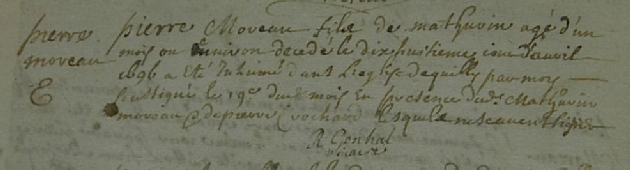 pierre
moreau
pierre Moreau fils de mathurin agé d'un
mois ou Environ decedé le dix huitieme jour d'avril
1696 a Eté Inhumé dans L'eglise par moy
Soussigné le 19e dud mois En presence dud. Mathurin
moreau & de pierre crochard Lesquels ne scavent signer